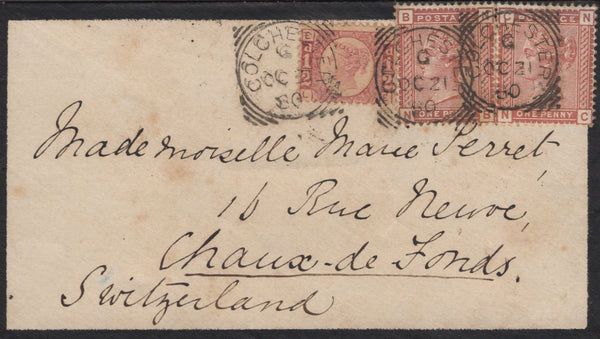 COLCHESTER
G
OC 21
80
B POSTAGE
COLCHESTER
G
OC 21
80
N ONE PENNY B
COLCHESTER
G
OC 21
80
N
N ONE PENNY C
Mademoiselle Marie Perret,
16 Rue Neuve,
Chaux-de Fonds.
Switzerland